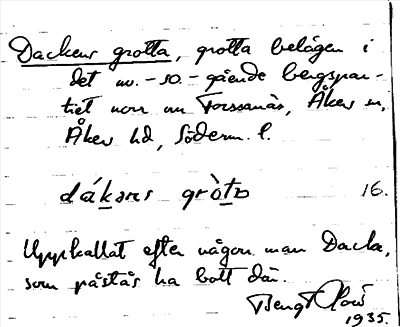 Dackens grotta, grotta belägen i
det nv.-so.-gående bergspar-
tiet norr om Forssanäs, Åkers sn,
Åkers hd, Söderm. l.
dákans gròta 16.
Uppkallat efter någon man Dacke,
som påstås ha bott där.
Bengt
1935.